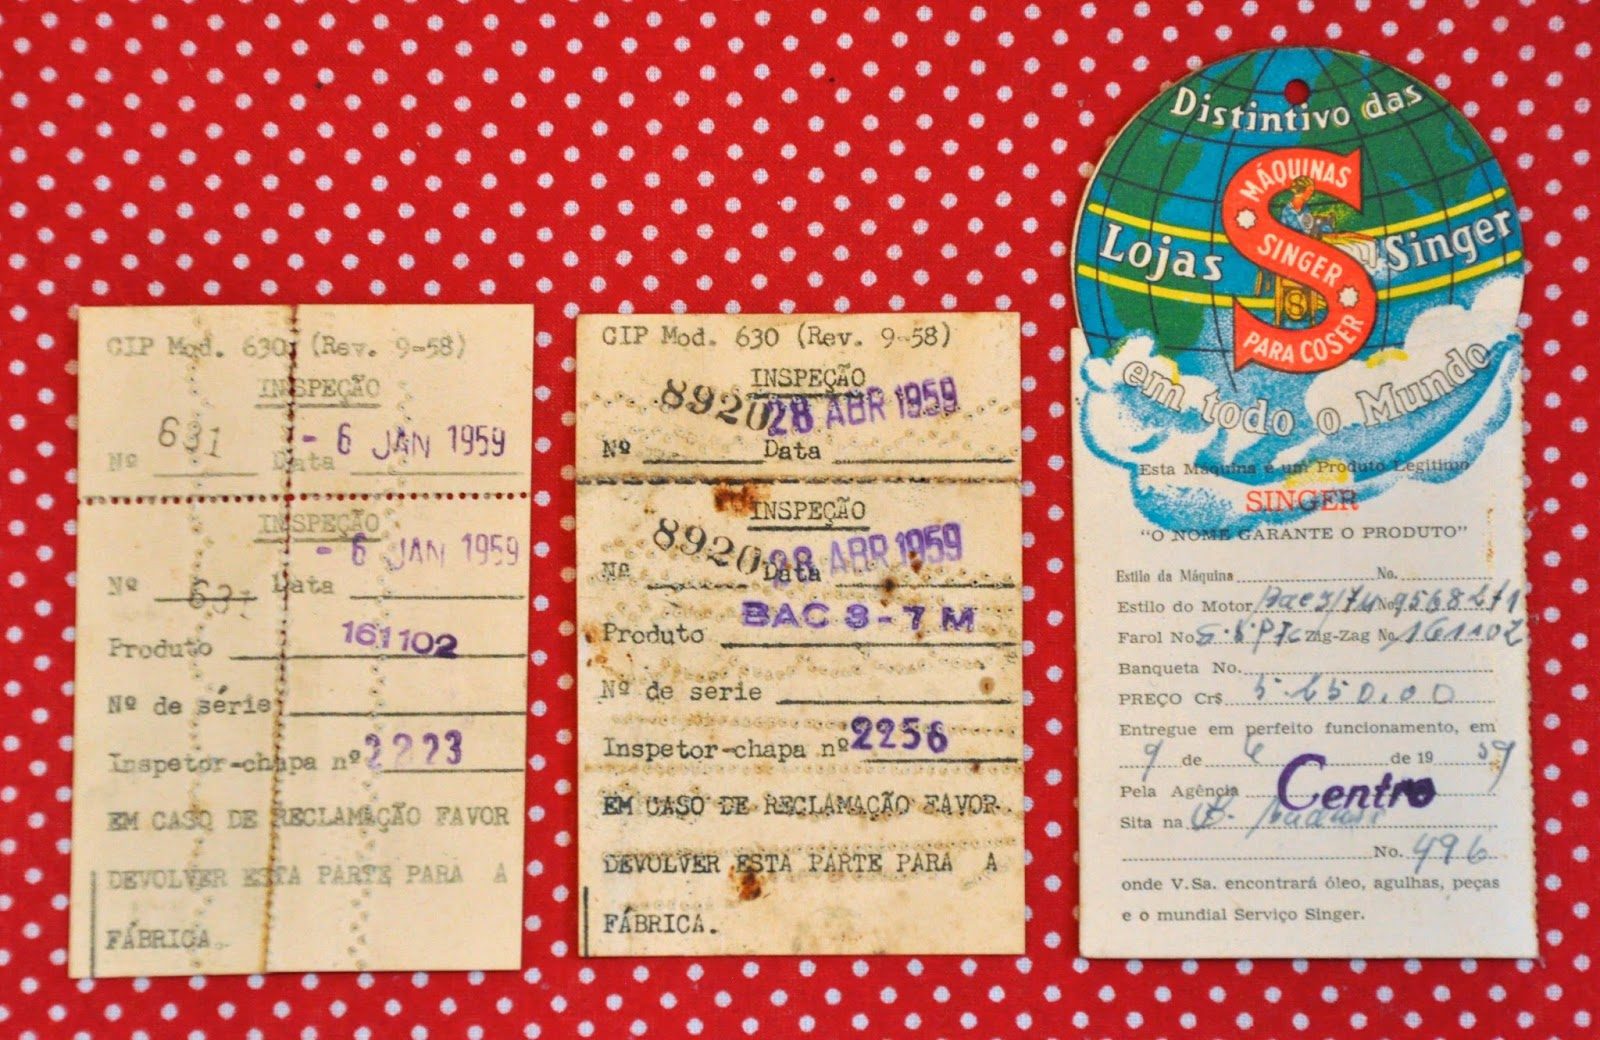 CIP Mod. 630 (Rev. 9-58)
INSPEÇÃO
Nº 631 Data - 6 JAN 1959
INSPEÇÃO
Nº 631 Data - 6 JAN 1959
Produto 161102
Nº de série
Inspetor-chapa nº 2223
EM CASO DE RECLAMAÇÃO FAVOR
DEVOLVER ESTA PARTE PARA A
FÁBRICA.
CIP Mod. 630 (Rev. 9-58)
INSPEÇÃO
Nº 8920 Data 28 ABR 1959
INSPEÇÃO
Nº 8920 Data 28 ABR 1959
Produto BAC 3-7 M
Nº de serie
Inspetor-chapa nº 2256
EM CASO DE RECLAMAÇÃO FAVOR
DEVOLVER ESTA PARTE PARA A
FÁBRICA.
Distintivo das
MÁQUINAS
SINGER
PARA COSER
Lojas Singer
em todo o Mundo
Esta Máquina é um Produto Legítimo
SINGER
"O NOME GARANTE O PRODUTO"
Estilo da Máquina No.
Estilo do Motor No.
Farol No. Zig-Zag No. 161102
Banqueta No.
PREÇO Cr$ 5.650,00
Entregue em perfeito funcionamento, em
9 de 6 de 19 59
Pela Agência Centro
Sita na
No. 496
onde V.Sa. encontrará óleo, agulhas, peças
e o mundial Serviço Singer.